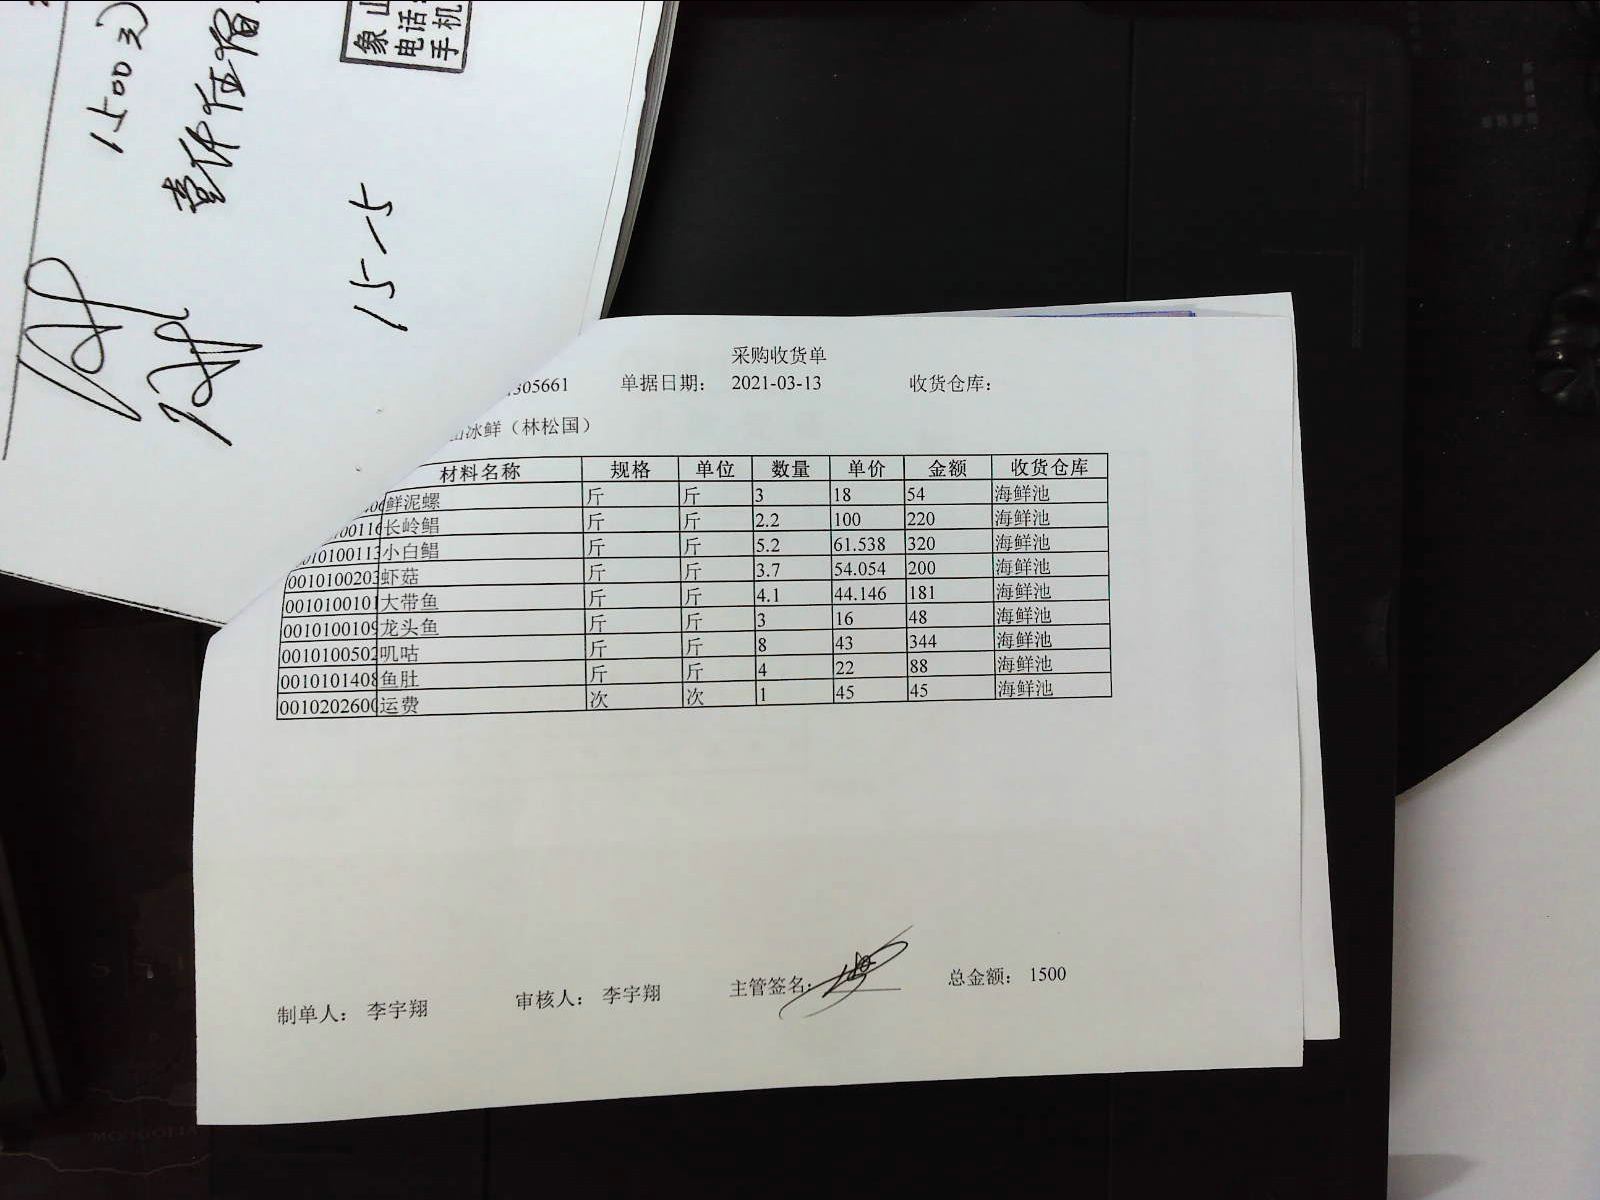 1500元
壹仟伍佰
15-5
象山
电话:
手机
采购收货单
305661 单据日期： 2021-03-13 收货仓库：
冰鲜（林松国）
材料名称 规格 单位 数量 单价 金额 收货仓库
鲜泥螺 斤 斤 3 18 54 海鲜池
00116 长岭鲳 斤 斤 2.2 100 220 海鲜池
010100113 小白鲳 斤 斤 5.2 61.538 320 海鲜池
0010100203 虾菇 斤 斤 3.7 54.054 200 海鲜池
0010100101 大带鱼 斤 斤 4.1 44.146 181 海鲜池
0010100109 龙头鱼 斤 斤 3 16 48 海鲜池
0010100502 叽咕 斤 斤 8 43 344 海鲜池
0010101408 鱼肚 斤 斤 4 22 88 海鲜池
0010202600 运费 次 次 1 45 45 海鲜池
制单人： 李宇翔 审核人： 李宇翔 主管签名： 总金额： 1500